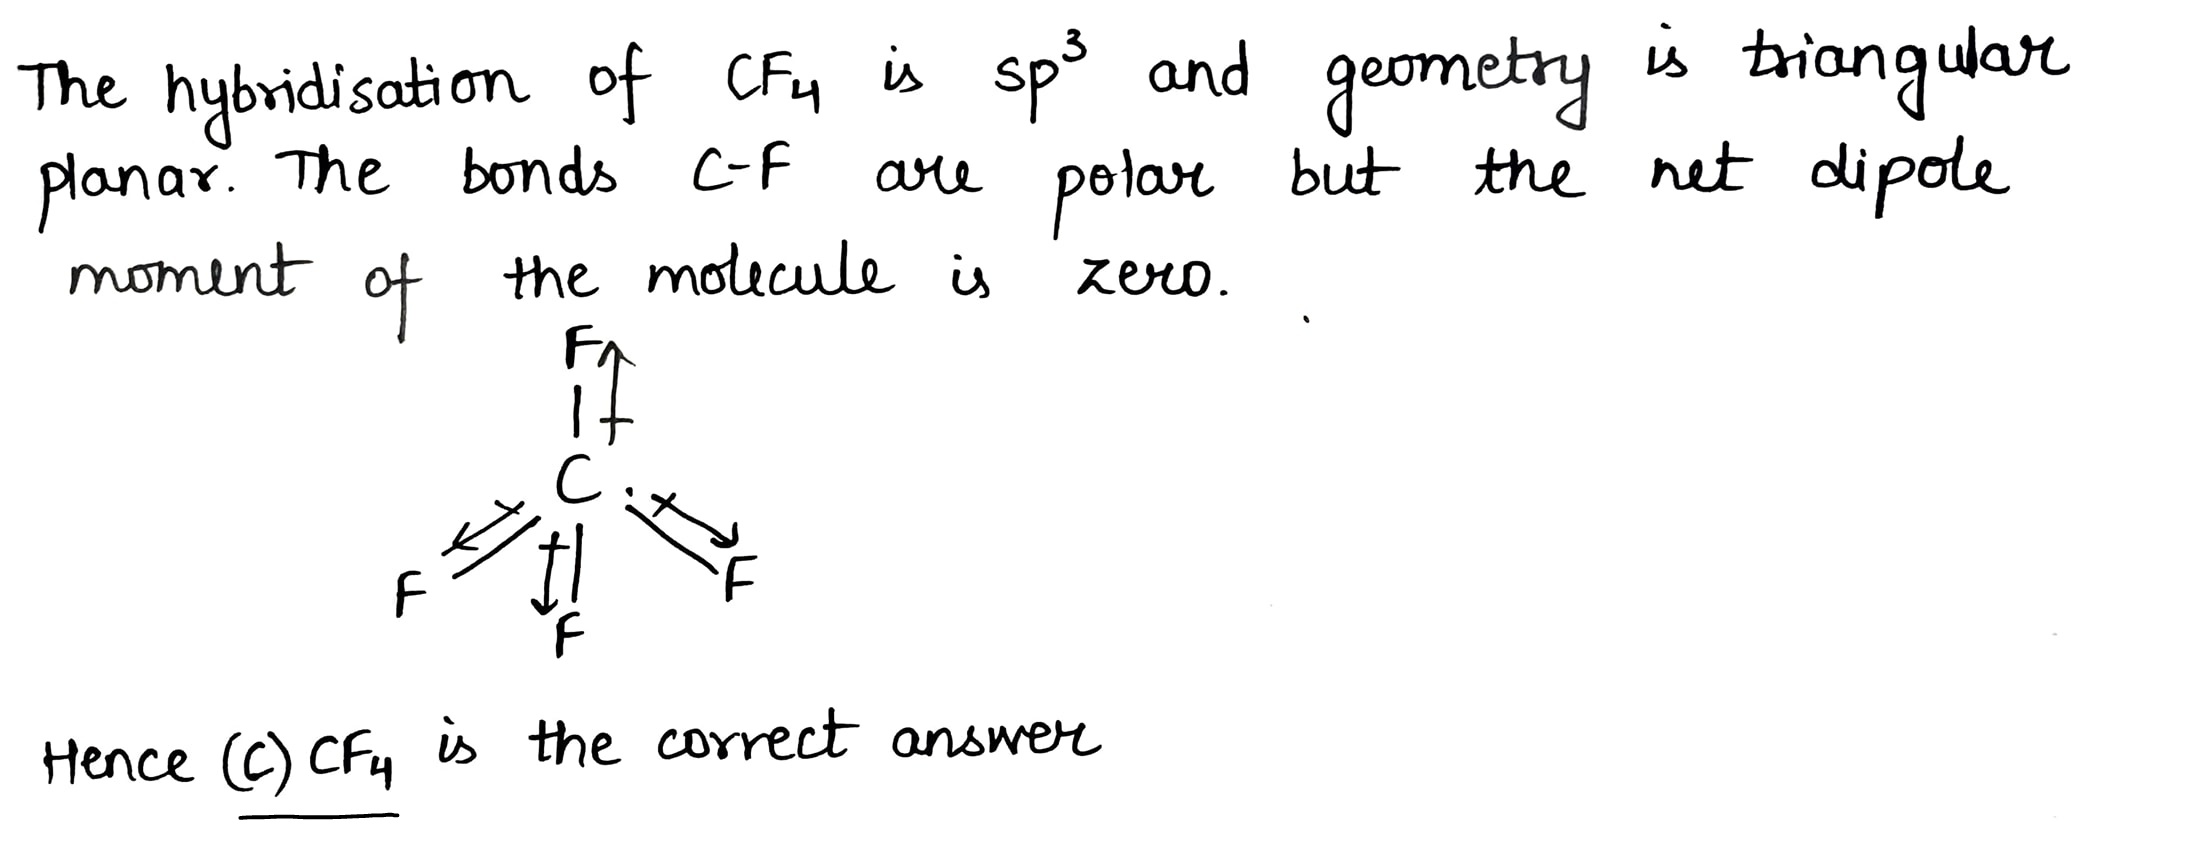 The hybridisation of CF₄ is sp³ and geometry is triangular
planar. The bonds C-F are polar but the net dipole
moment of the molecule is zero.
F
C
F F
F
Hence (C) CF₄ is the correct answer